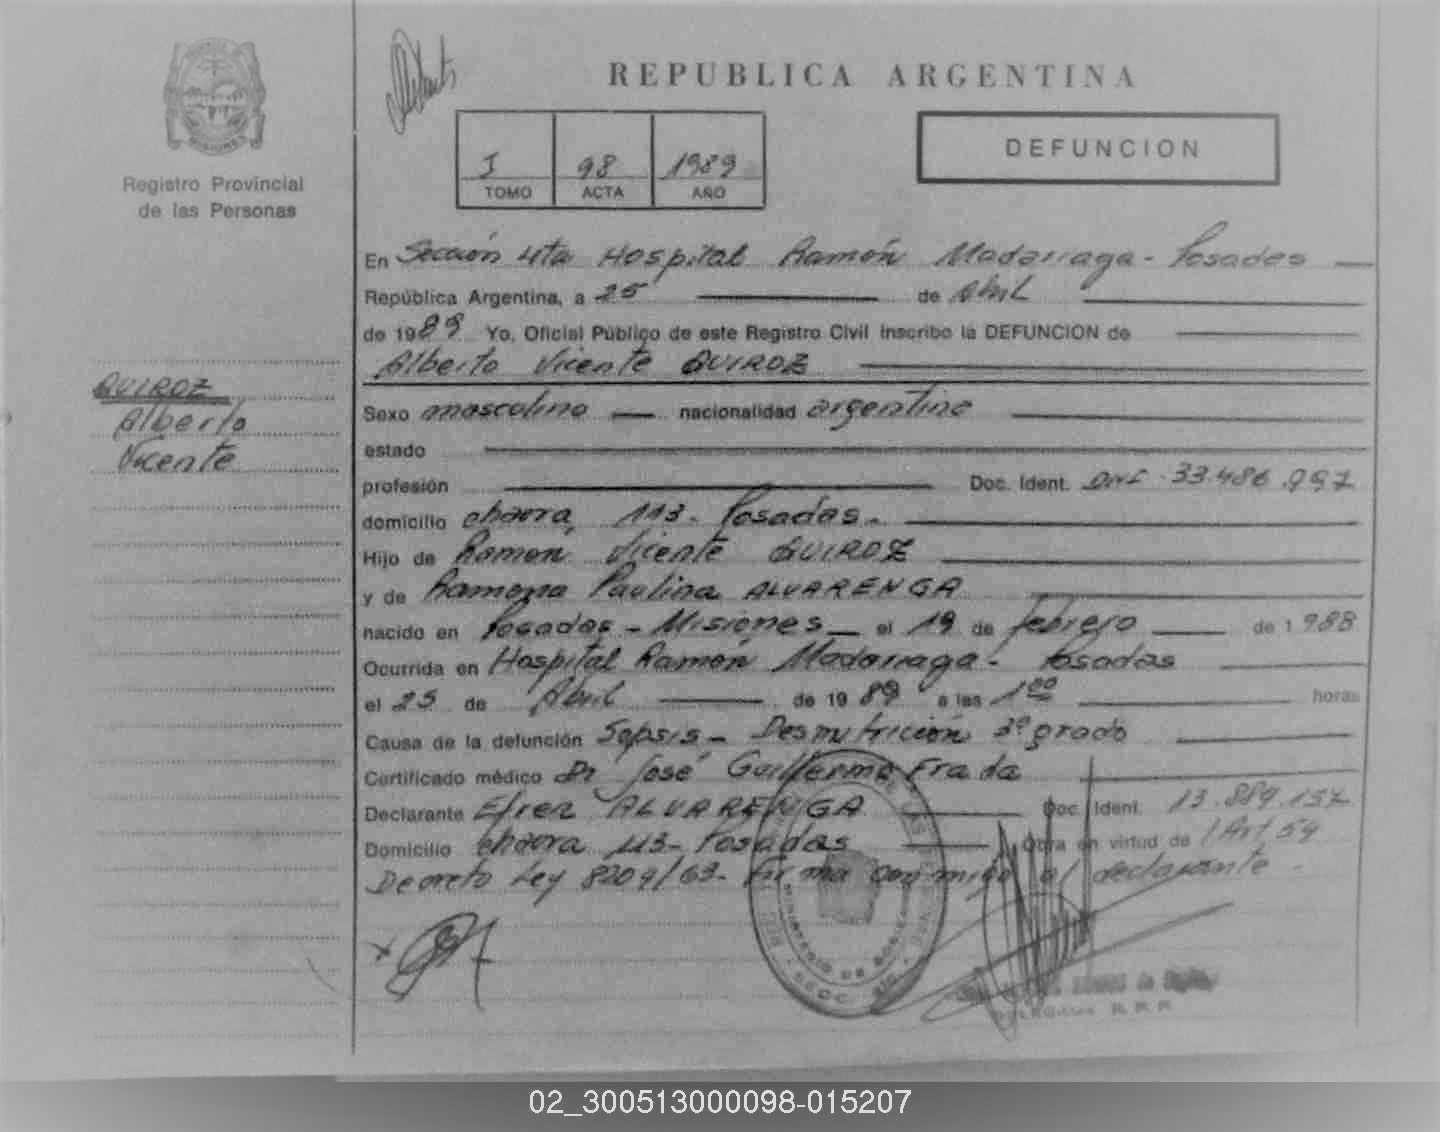 MISIONES
Registro Provincial
de las Personas
QUIROZ
Alberto
Vicente
REPUBLICA ARGENTINA
I 98 1989
TOMO ACTA AÑO
DEFUNCION
En Sección 4ta Hospital Ramón Madariaga - Posadas
República Argentina, a 25 de Abril
de 1989 Yo, Oficial Público de este Registro Civil inscribo la DEFUNCION de
Alberto Vicente QUIROZ
Sexo masculino nacionalidad argentina
estado
profesión Doc. Ident. DNI - 33.486.997
domicilio chacra 113 - Posadas.
Hijo de Ramón Vicente QUIROZ
y de Ramona Paulina ALVARENGA
nacido en Posadas - Misiones el 19 de febrero de 1988
Ocurrida en Hospital Ramón Madariaga - Posadas
el 25 de Abril de 1989 a las 1 00 horas
Causa de la defunción Sepsis - Desnutrición 3º grado
Certificado médico Dr José Guillermo Frada
Declarante Efren ALVARENGA Doc. Ident. 13.889.157
Domicilio chacra 113 - Posadas Obra en virtud de l Art 59
Decreto Ley 8204/63 - Firma conmigo el declarante -
MINISTERIO DE
R. P. P.
02_300513000098-015207